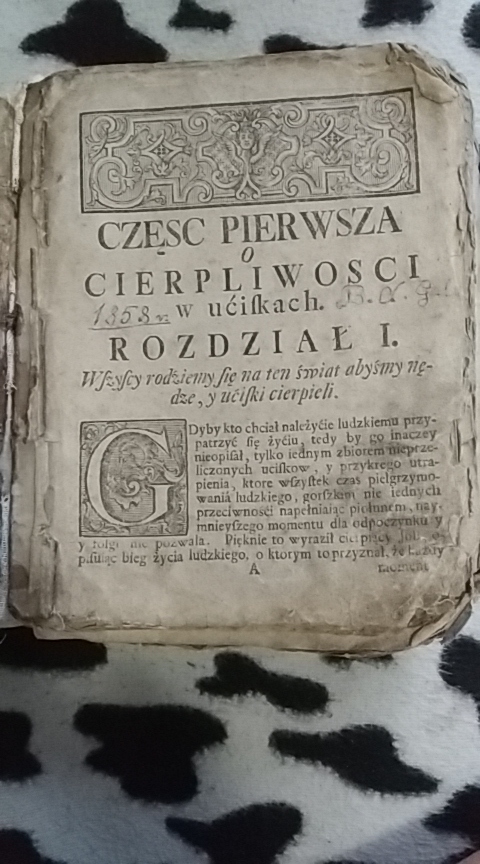 CZĘSC PIERWSZA
O
CIERPLIWOSCI
1858 w ućiſkach.
ROZDZIAŁ I.
Wſzyſcy rodźiemy ſię na ten świat abyśmy nę-
dze, y ućiſki cierpieli.
GDyby kto chciał należyćie ludzkiemu przy-
patrzyć ſię życiu, tedy by go inaczey
nieopiſał, tylko iednym zbiorem nieprze-
liczonych uciſkow, y przykrego utra-
pienia, ktore wſzyſtek czas pielgrzymo-
wania ludzkiego, gorſzkim nie iednych
przeciwnośći napełniaiąc piołunem, nay-
mnieyſzego momentu dla odpoczynku y
y folgi nie pozwala. Pięknie to wyraził cierpiący
piſuiąc bieg życia ludzkiego, o ktorym to przyznał, że każdy
A moment